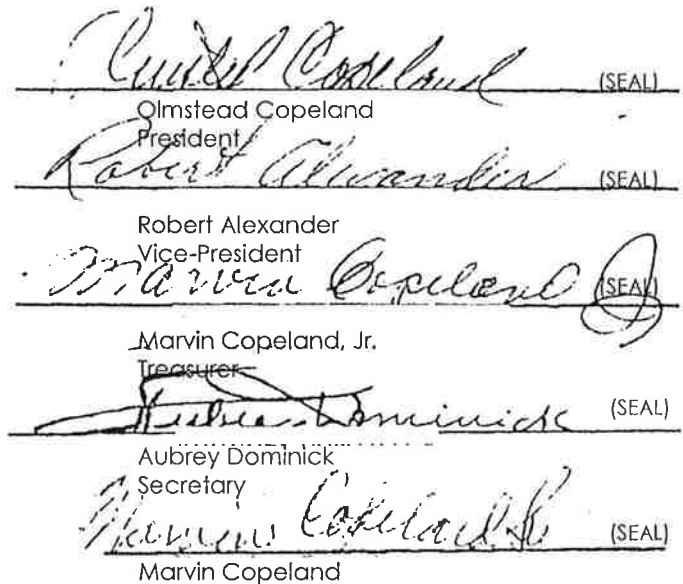 Copeland (SEAL)
Olmstead Copeland
President
Robert Alexander (SEAL)
Robert Alexander
Vice-President
Marvin Copeland Jr (SEAL)
Marvin Copeland, Jr.
Treasurer
Aubrey Dominick (SEAL)
Aubrey Dominick
Secretary
Marvin Copeland Sr (SEAL)
Marvin Copeland